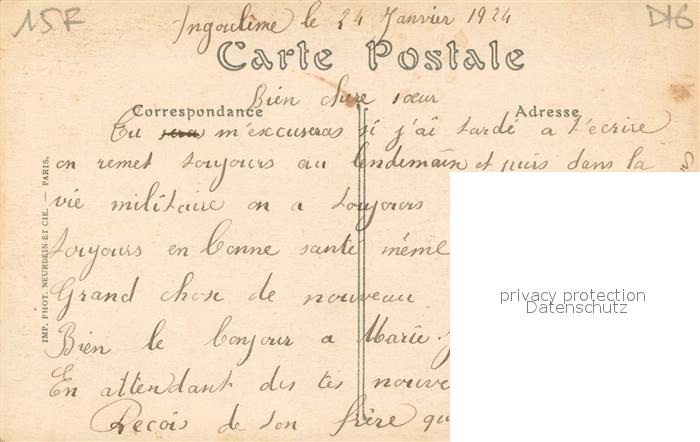 15F
D16
Angoulême le 24 Janvier 1924
Carte Postale
Bien chere sœur
Correspondance
Adresse
Tu sera m'excuseras si j'ai tardé a t'ecrire
on remet toujours au lendemain et puis dans la
vie militaire on a toujours
toujours en bonne santé même
Grand chose de nouveau
Bien le bonjour a Marie
En attendant des tes nouve
Recois de ton frère qu
IMP. PHOT. NEURDEIN ET CIE. — PARIS.
privacy protection
Datenschutz